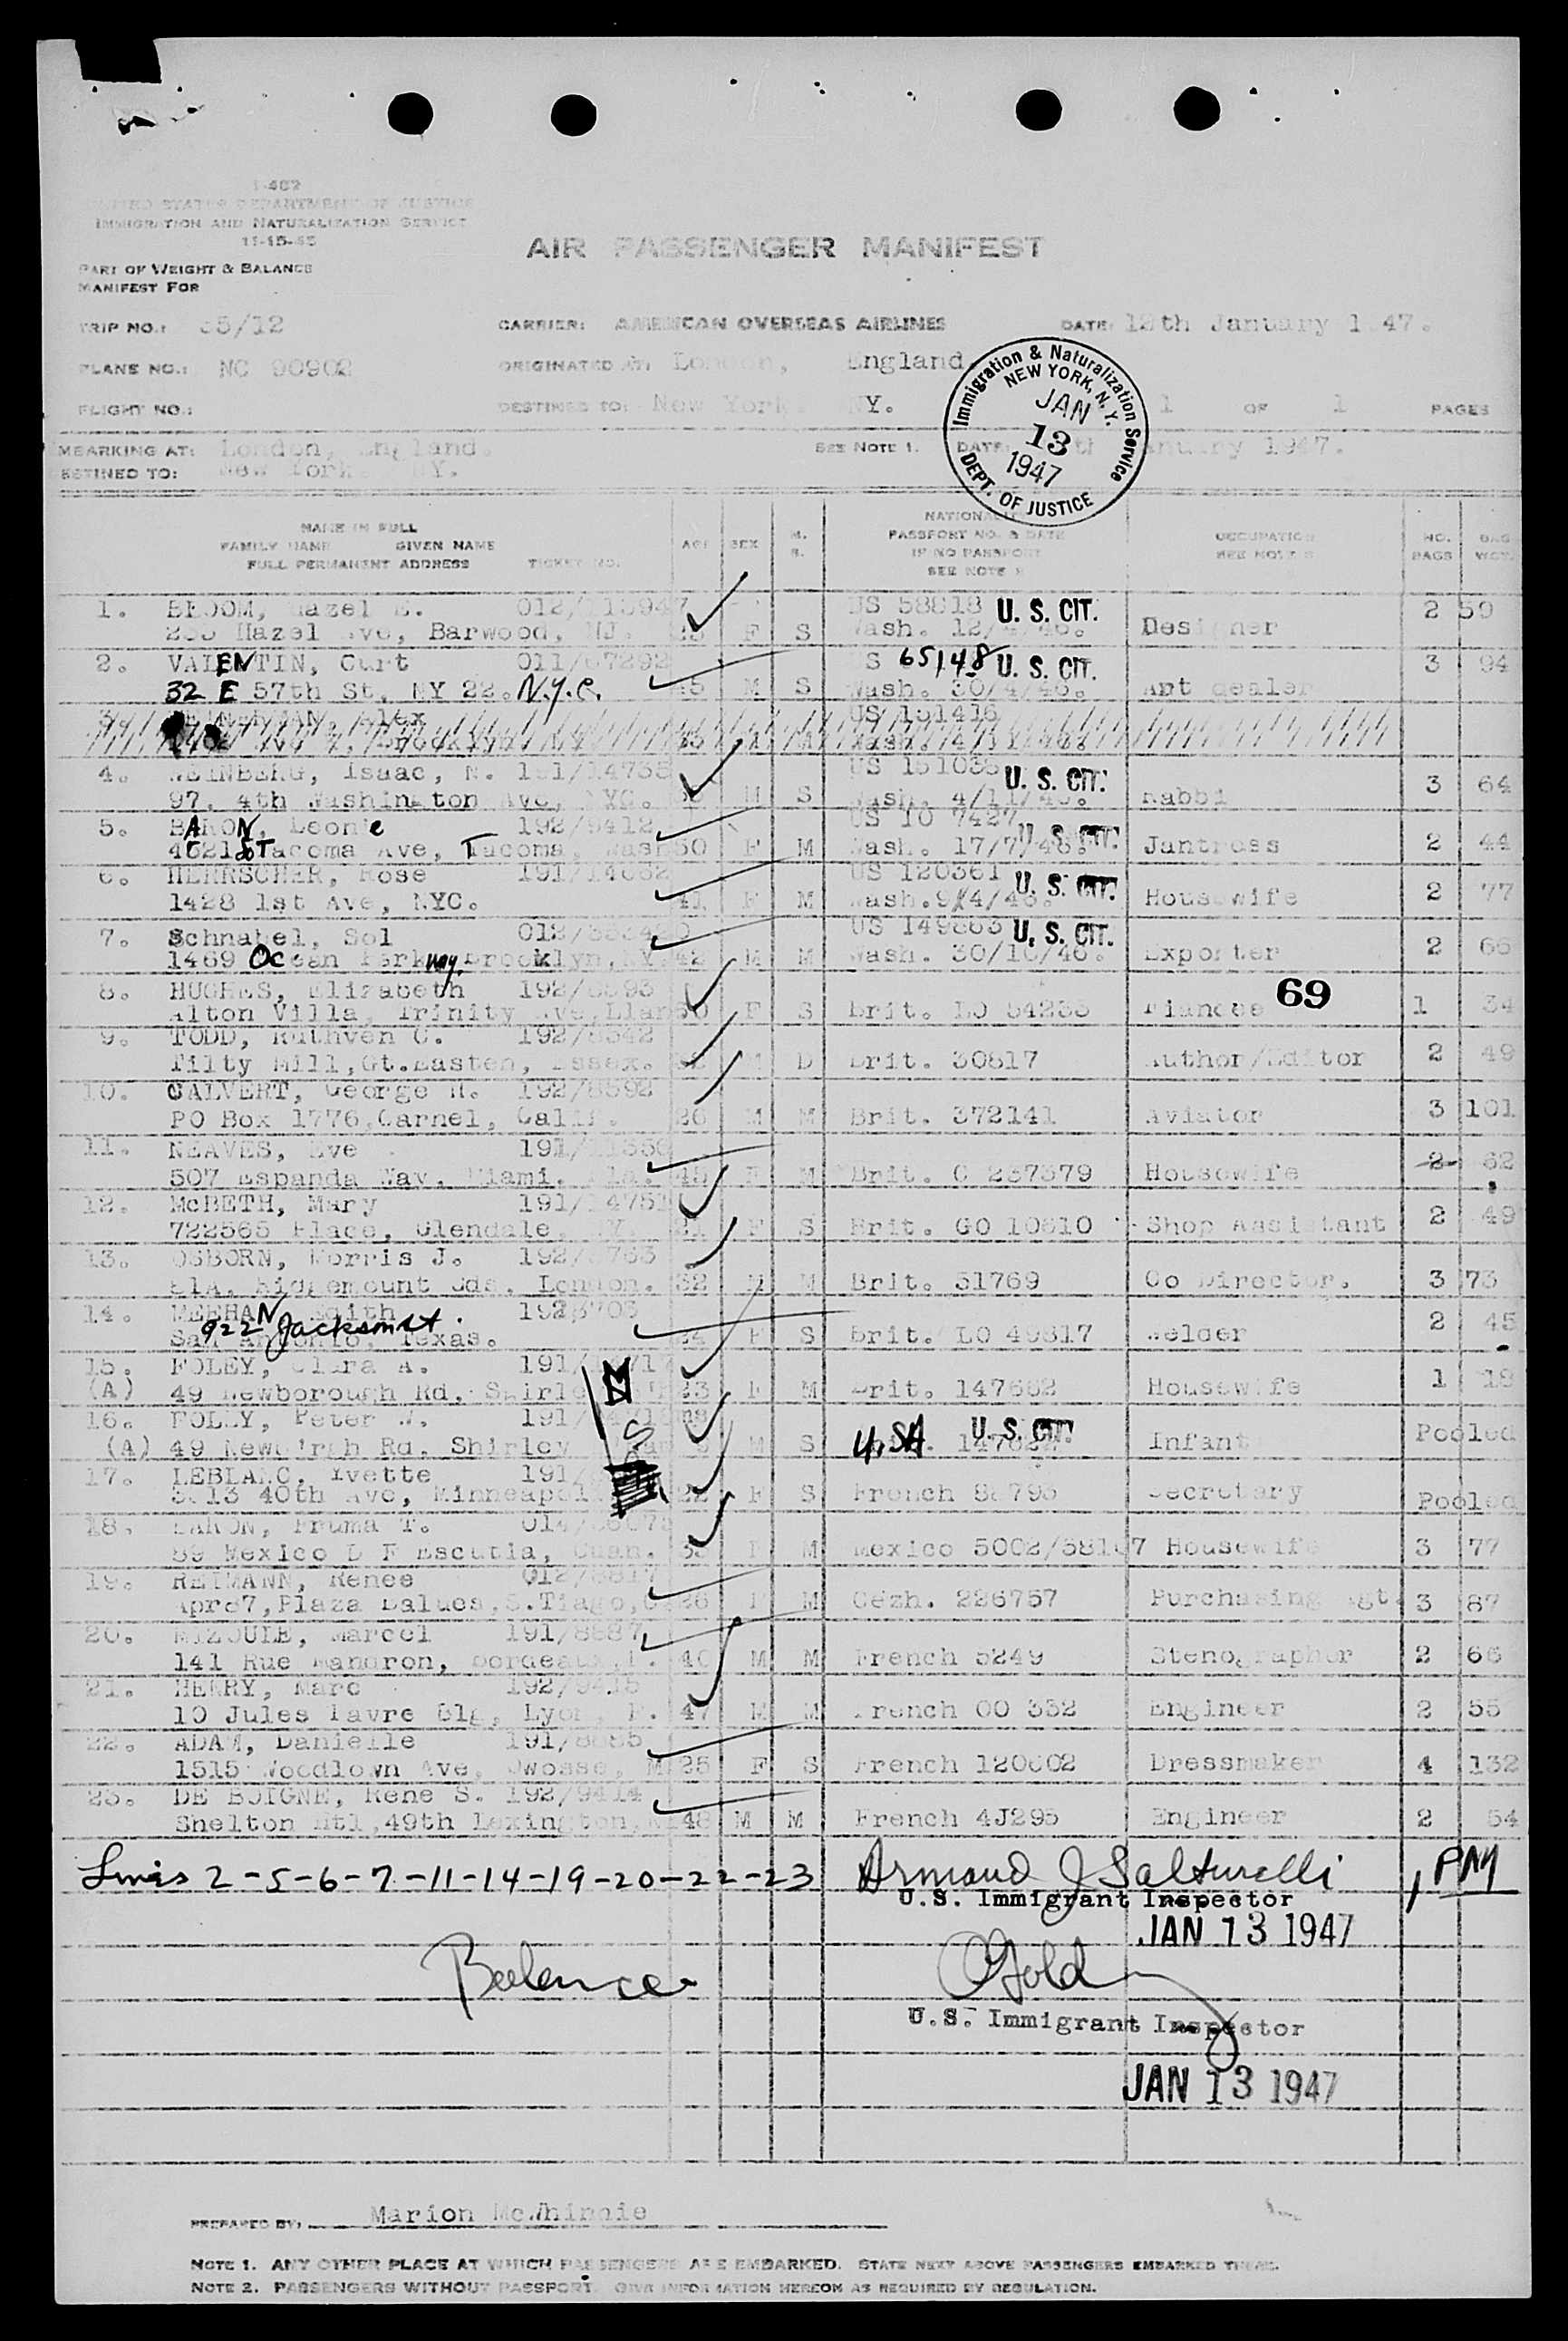 I-482
UNITED STATES DEPARTMENT OF JUSTICE
IMMIGRATION AND NATURALIZATION SERVICE
11-15-45
PART OF WEIGHT & BALANCE
MANIFEST FOR
AIR PASSENGER MANIFEST
TRIP NO.: 35/12 CARRIER: AMERICAN OVERSEAS AIRLINES DATE: 12th January 1947.
PLANE NO.: NC 90902 ORIGINATED AT: London, England.
FLIGHT NO.: DESTINED TO: New York, NY. 1 OF 1 PAGES
Immigration & Naturalization Service
NEW YORK, N.Y.
JAN
13
1947
DEPT. OF JUSTICE
MBARKING AT: London, England. SEE NOTE 1. DATE: January 1947.
ESTINED TO: New York, NY.
NAME IN FULL
FAMILY NAME GIVEN NAME
FULL PERMANENT ADDRESS TICKET NO. AGE SEX M. S. PASSPORT NO. & DATE
IF NO PASSPORT
SEE NOTE 2 OCCUPATION
SEE NOTE 2 NO. BAGS BAG WGT.
1. BLOOM, Hazel 012/ US 58818 U. S. CIT. 2 59
Hazel Ave, Barwood, NJ. F S Wash. Designer
2. VALENTIN, Curt 011/67292 US 65148 U. S. CIT. 3 94
32 E 57th St, NY 22. N.Y.C. 45 M S Wash. 30/4/46. Art dealer
3. Alex US 151416
Brooklyn
4. WEINBERG, Isaac, N. 191/14735 US 151035 U. S. CIT. 3 64
97, 4th Washington Ave, NYC. M S Wash. 4/11/46. Rabbi
5. BARON, Leonie 192/9412 US 10 7427 U. S. CIT.
4621 So Tacoma Ave, Tacoma, Wash 50 F M Wash. 17/7/46. Jantress 2 44
6. HERRSCHER, Rose 191/14662 US 120361 U. S. CIT.
1428 1st Ave, NYC. 41 F M Wash. 9/4/46. Housewife 2 77
7. Schnabel, Sol 012/ US 149863 U. S. CIT.
1469 Ocean Parkway, Brooklyn, NY. 42 M M Wash. 30/10/46. Exporter 2 66
8. HUGHES, Elizabeth 192/8593 69
Alton Villa, Trinity Ave, Llan F S Brit. LO 54235 Fiancee 1 34
9. TODD, Ruthven C. 192/8542
Tilty Mill, Gt. Easten, Essex. 32 M D Brit. 30817 Author/Editor 2 49
10. CALVERT, George H. 192/8592
PO Box 1776, Carmel, Calif. 26 M M Brit. 372141 Aviator 3 101
11. NEAVES, Eve 191/
507 Espanda Way, Miami, Fla. 45 F M Brit. C 237379 Housewife 2 62
12. McBETH, Mary 191/14751
722565 Place, Glendale, NY. 21 F S Brit. GO 10610 Shop Assistant 2 49
13. OSBORN, Morris J. 192/
51A, Ridgemount Gds, London. 32 M M Brit. 31769 Co Director. 3 73
14. MEEHAN, Edith
922 Jackson St.
San Antonio, Texas. F S Brit. LO 49817 Welder 2 45
15. FOLEY, Clara A. 191/
(A) 49 Newborough Rd, Shirley 23 F M Brit. 147662 Housewife 1 18
16. FOLEY, Peter W. 191/
(A) 49 Newb'rgh Rd, Shirley M S U.S.A. U. S. CIT. Infant Pooled
17. LEBLANC, Yvette 191/
3613 40th Ave, Minneapolis 22 F S French 88795 Secretary Pooled
18. BARON, Fruma T. 014/
89 Mexico D F Escutia, Guan. F M Mexico 5002/58107 Housewife 3 77
19. REIMANN, Renee 012/8817
Apr87, Plaza Balues, S.Tiago, 26 F M Cezh. 226757 Purchasing Agt. 3 87
20. MIZOULE, Marcel 191/8887
141 Rue Mandron, Bordeaux, F. 40 M M French 5249 Stenographer 2 66
21. HENRY, Marc 192/9415
10 Jules Favre Blg, Lyon, F. 47 M M French 00 332 Engineer 2 55
22. ADAM, Danielle 191/8885
1515 Woodlown Ave, Owosse, M 25 F S French 120602 Dressmaker 4 132
23. DE BOIGNE, Rene S. 192/9414
Shelton Htl, 49th Lexington, 48 M M French 4J295 Engineer 2 54
Lines 2-5-6-7-11-14-19-20-22-23 Armand J Salturelli, PNY
U.S. Immigrant Inspector
JAN 13 1947
Balance Gold
U.S. Immigrant Inspector
JAN 13 1947
PREPARED BY: Marion McWhinnie
NOTE 1. ANY OTHER PLACE AT WHICH PASSENGERS ARE EMBARKED. STATE NEXT ABOVE PASSENGERS EMBARKED THERE.
NOTE 2. PASSENGERS WITHOUT PASSPORT. GIVE INFORMATION HEREON AS REQUIRED BY REGULATION.